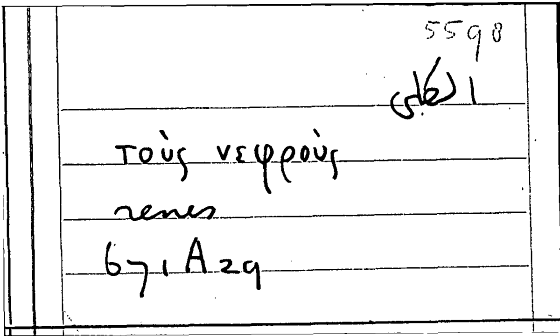 5598
الكلى
τοὺς νεφρούς
renes
671 A 29